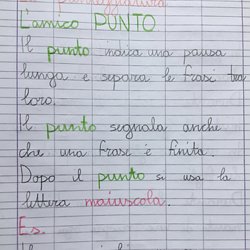 La punteggiatura
L'amico PUNTO.
Il punto indica una pausa
lunga e separa le frasi tra
loro.
Il punto segnala anche
che una frase è finita.
Dopo il punto si usa la
lettera maiuscola.
Es.